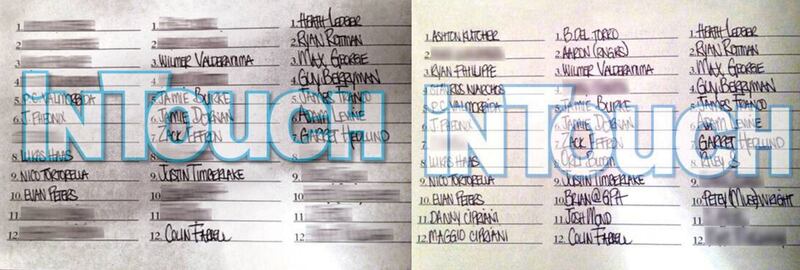 1.
2.
3.
4.
5. P.C. VALMORBIDA
6. J. PHEONIX
7.
8. LUKAS HAAS
9. NICO TORTORELLA
10. EVAN PETERS
11.
12.
1.
2.
3. WILMER VALDERAMA
4.
5. JAMIE BURKE
6. JAMIE DORNAN
7. ZACK EFFRON
8.
9. JUSTIN TIMBERLAKE
10.
11.
12. COLIN FARRELL
1. HEATH LEDGER
2. RYAN ROTTMAN
3. MAX GEORGE
4. GUY BERRYMAN
5. JAMES FRANCO
6. ADAM LEVINE
7. GARRET HEDLUND
8.
9.
10.
11.
12.
InTouch
1. ASHTON KUTCHER
2.
3. RYAN PHILLIPE
4. STAVROS NIARCHOS
5. P.C. VALMORBIDA
6. J. PHEONIX
7.
8. LUKAS HAAS
9. NICO TORTORELLA
10. EVAN PETERS
11. DANNY CIPRIANI
12. MAGGIO CIPRIANI
1. B. DEL TORRO
2. AARON
3. WILMER VALDERAMA
4.
5. JAMIE BURKE
6. JAMIE DORNAN
7. ZACK EFFRON
8. ORLANDO BLOOM
9. JUSTIN TIMBERLAKE
10. BRIAN @ GPA
11. JOSH MOND
12. COLIN FARRELL
1. HEATH LEDGER
2. RYAN ROTTMAN
3. MAX GEORGE
4. GUY BERRYMAN
5. JAMES FRANCO
6. ADAM LEVINE
7. GARRET HEDLUND
8.
9.
10. PETEY (MUSE) WRIGHT
11.
12.
InTouch